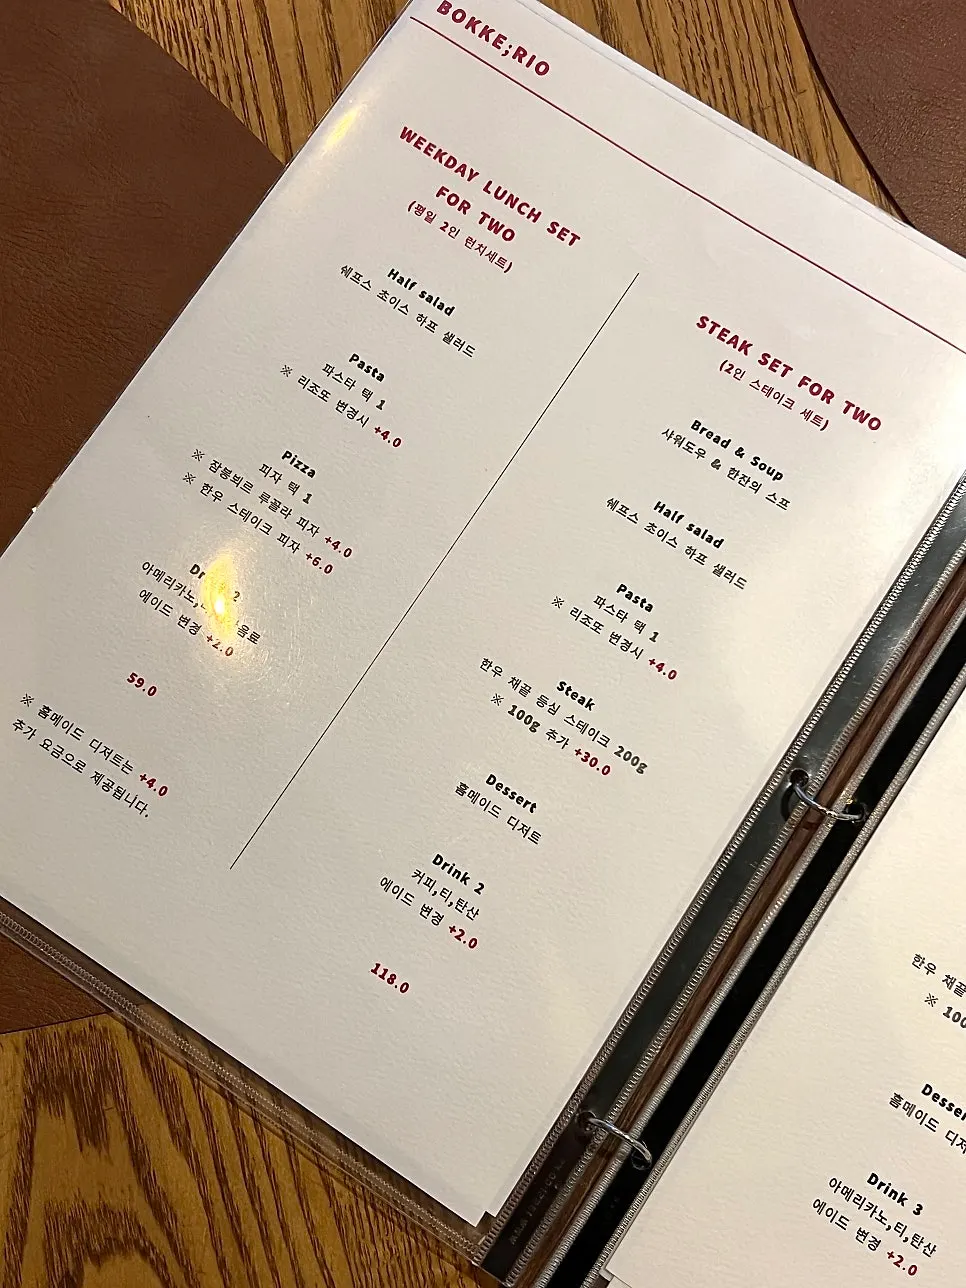 BOKKE;RIO
WEEKDAY LUNCH SET
FOR TWO
(평일 2인 런치세트)
Half salad
쉐프스 초이스 하프 샐러드
Pasta
파스타 택 1
※ 리조또 변경시 +4.0
Pizza
피자 택 1
※ 잠봉뵈르 루꼴라 피자 +4.0
※ 한우 스테이크 피자 +6.0
2
아메리카노,
에이드 변경 +2.0
59.0
※ 홈메이드 디저트는 +4.0
추가 요금으로 제공됩니다.
STEAK SET FOR TWO
(2인 스테이크 세트)
Bread & Soup
사워도우 & 한잔의 스프
Half salad
쉐프스 초이스 하프 샐러드
Pasta
파스타 택 1
※ 리조또 변경시 +4.0
Steak
한우 채끝 등심 스테이크 200g
※ 100g 추가 +30.0
Dessert
홈메이드 디저트
Drink 2
커피,티,탄산
에이드 변경 +2.0
118.0
한우 채끝
※
홈메이드
Drink 3
아메리카노,티,탄산
에이드 변경 +2.0